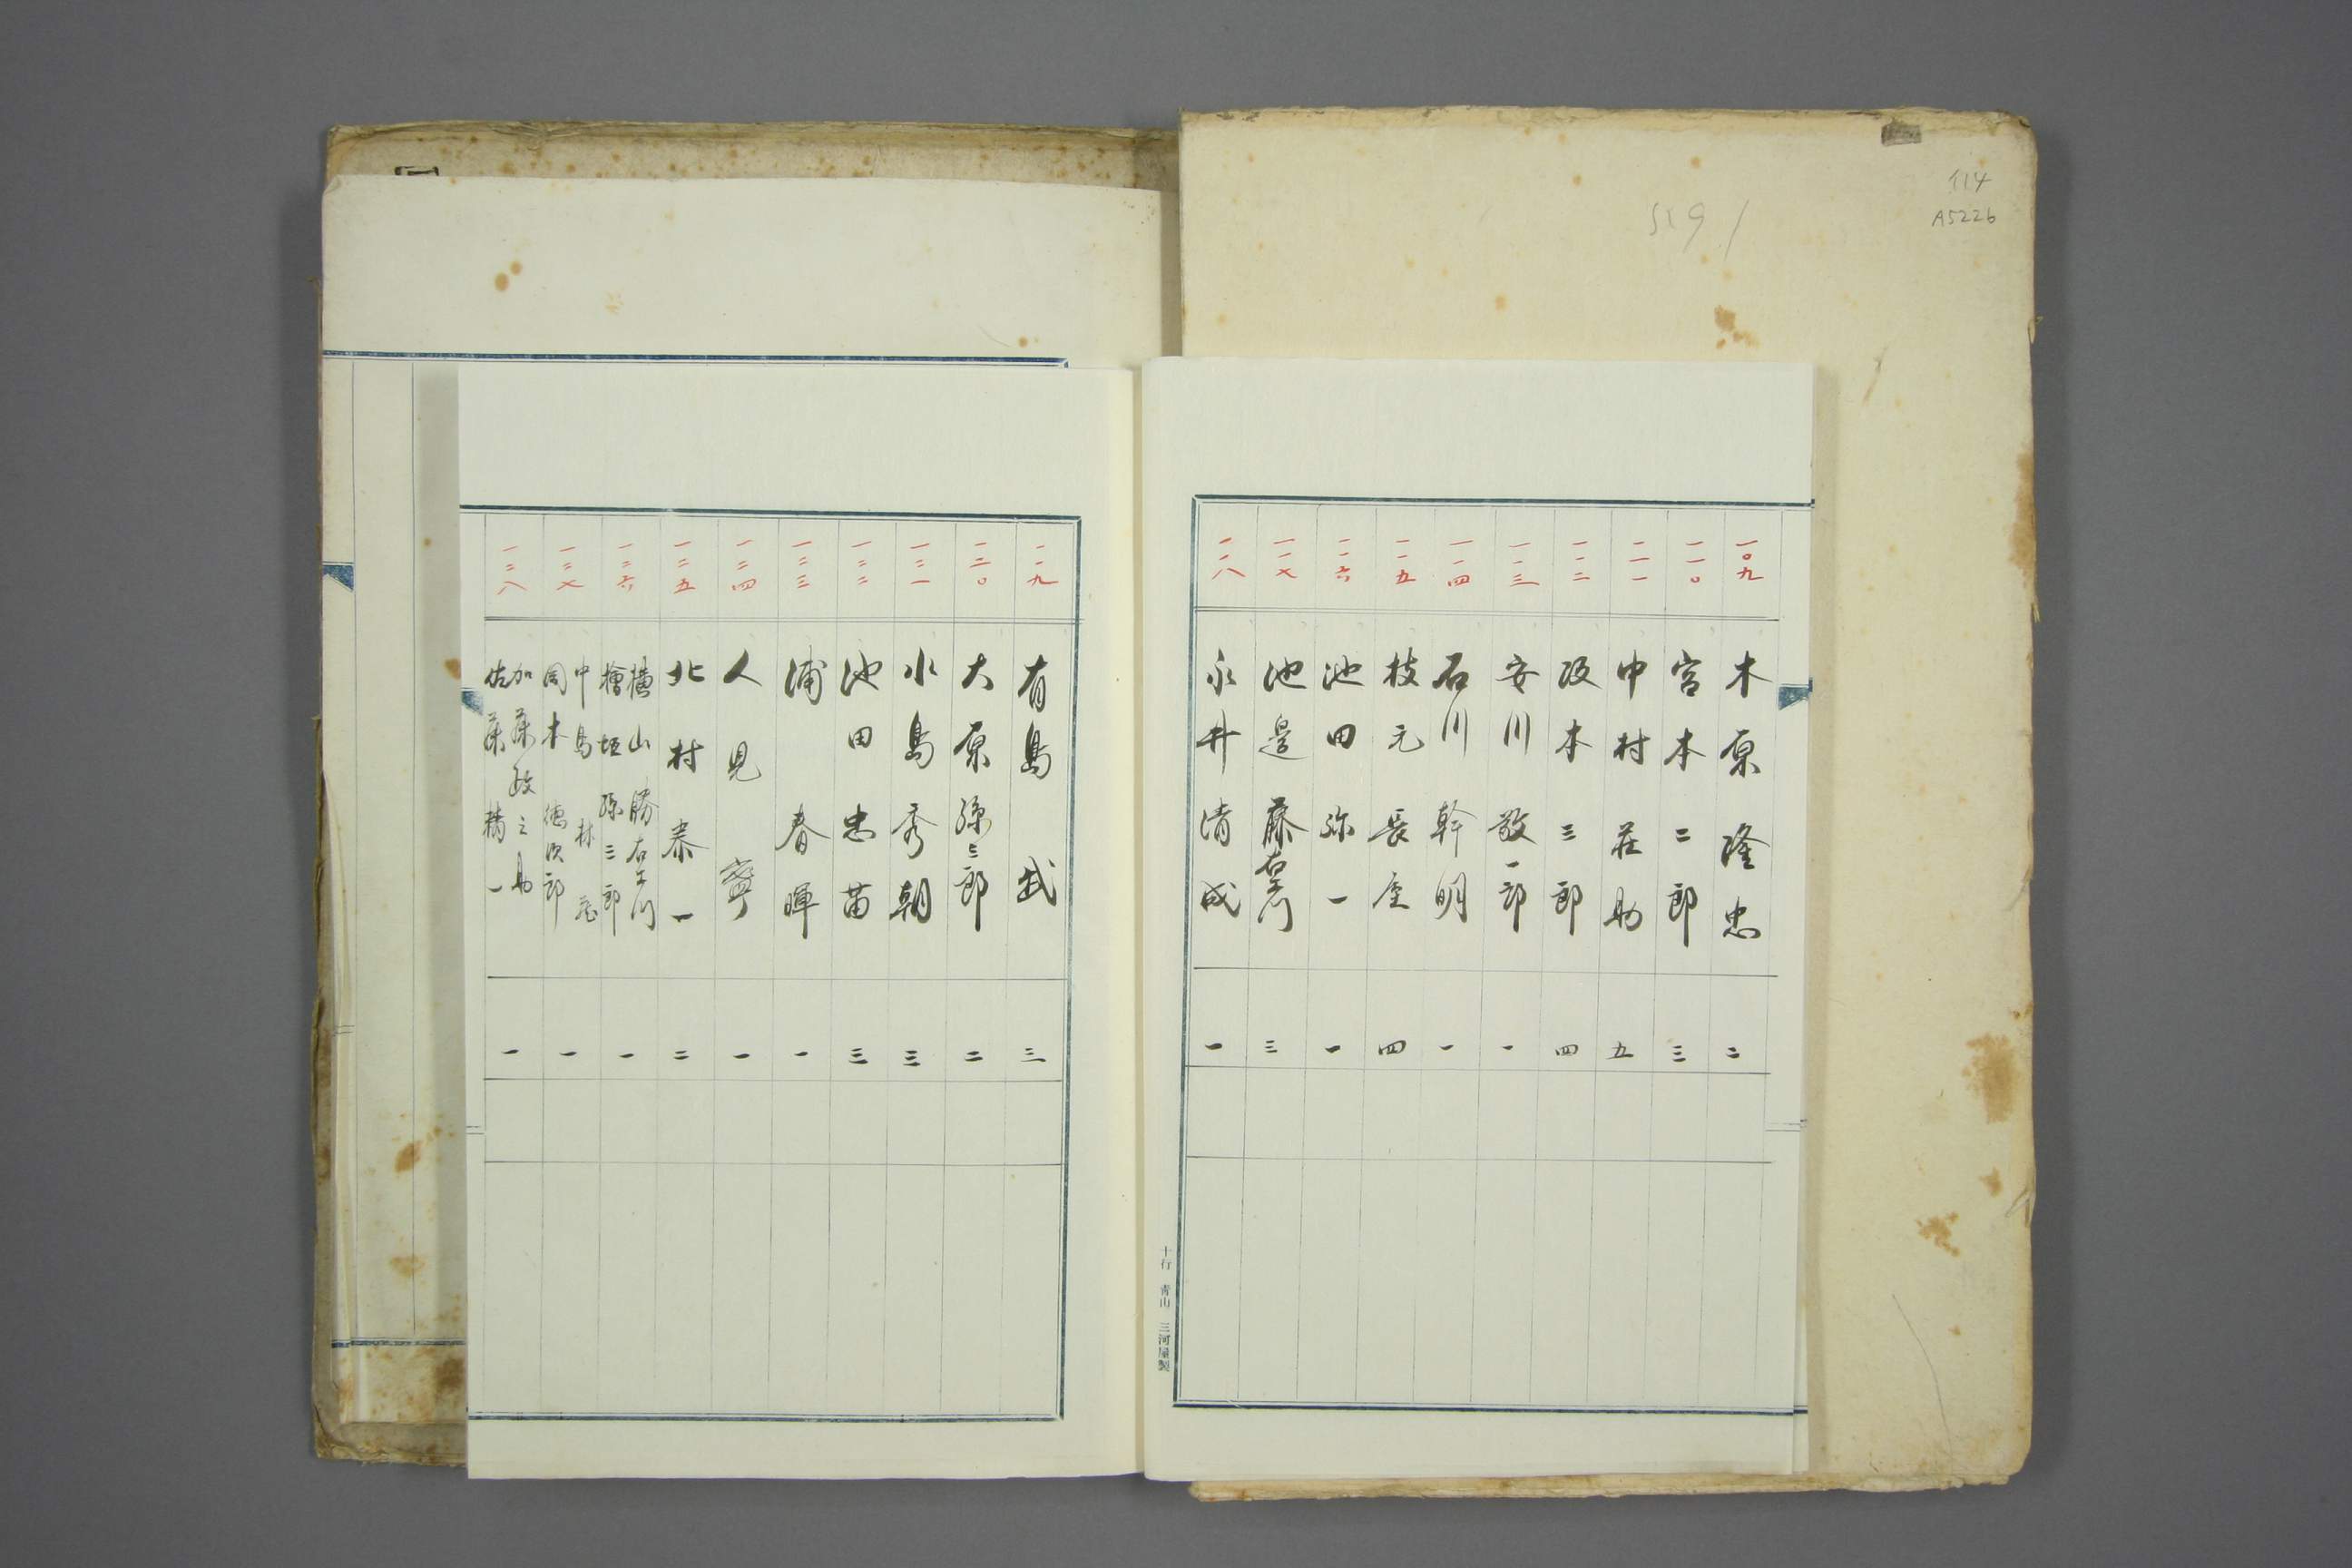 114
A5226
一〇九 木原隆忠 二
一一〇 宮本二郎 三
一一一 中村荘助 五
一一二 坂本三郎 四
一一三 安川敬一郎 一
一一四 石川幹明 一
一一五 枝元長 四
一一六 池田弥一 一
一一七 池邉藤右衛門 三
一一八 永井清成 一
十行 青山 三河屋製
一一九 有島武 三
一二〇 大原孫三郎 二
一二一 水島秀朝 三
一二二 池田忠苗 三
一二三 浦春暉 一
一二四 人見寧 一
一二五 北村泰一 二
一二六 横山勝右衛門
檜垣孫三郎 一
一二七 中島林蔵
岡本徳次郎 一
一二八 加藤政之助
佐藤精一 一